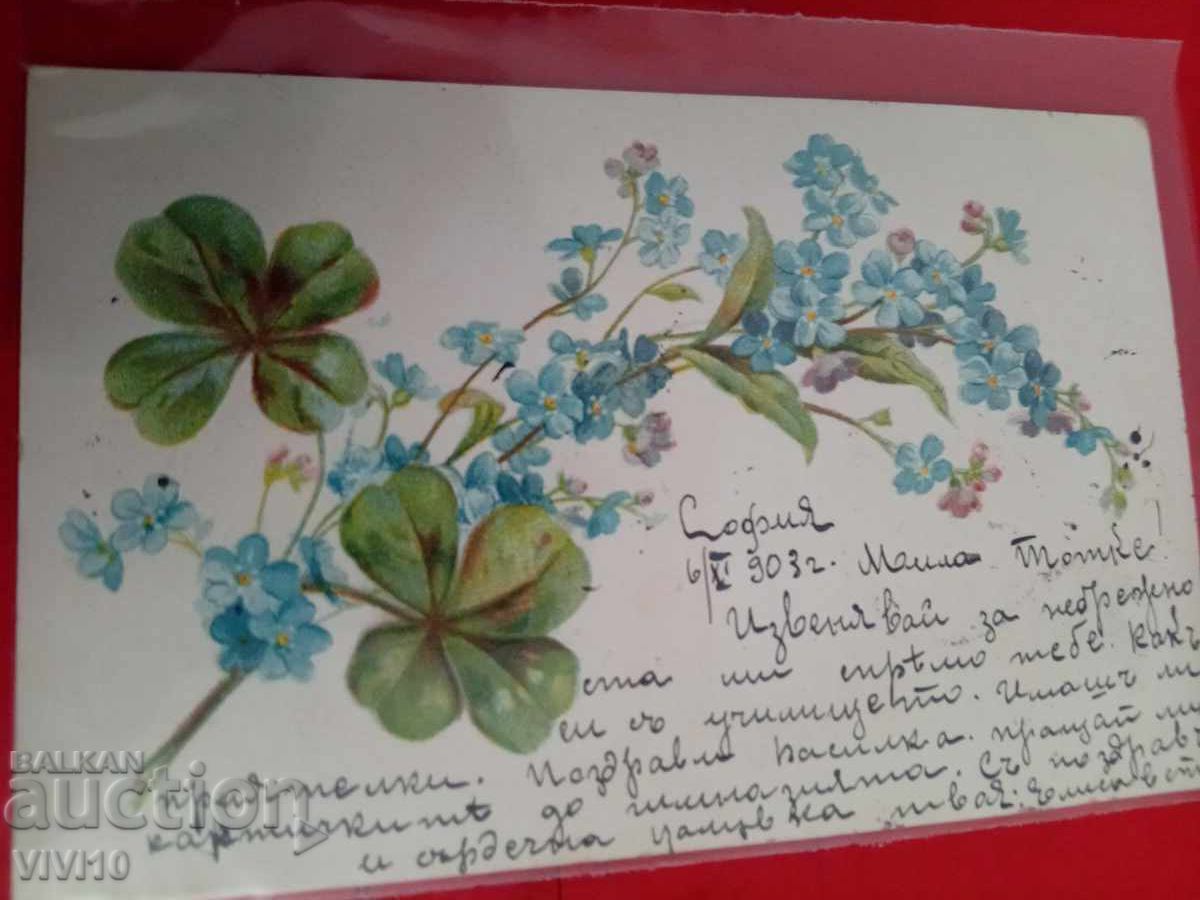 София
6/XI 903 г. Моила Тотке!
Извенявай за небрежно
ста ми спрѣмо тебе. Какъ
си съ училището. Имашъ ли
приятелки. Поздрави Василка. пращай ми
картичкитѣ до гимназията. Съ поздравъ
и сърдечна цалувка твоя: Елисавета
BALKAN
auction
VIVI10